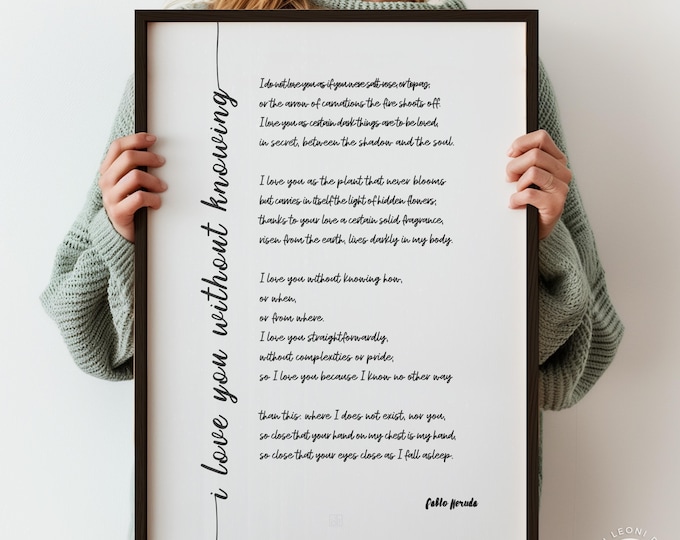 i love you without knowing
I do not love you as if you were salt-rose, or topaz,
or the arrow of carnations the fire shoots off.
I love you as certain dark things are to be loved,
in secret, between the shadow and the soul.
I love you as the plant that never blooms
but carries in itself the light of hidden flowers;
thanks to your love a certain solid fragrance,
risen from the earth, lives darkly in my body.
I love you without knowing how,
or when,
or from where.
I love you straightforwardly,
without complexities or pride;
so I love you because I know no other way
than this: where I does not exist, nor you,
so close that your hand on my chest is my hand,
so close that your eyes close as I fall asleep.
Pablo Neruda
LEONI